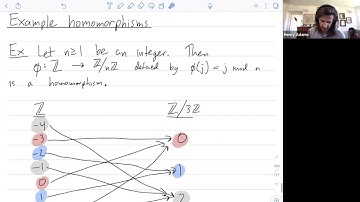 Example homomorphisms
Ex Let n≥1 be an integer. Then
φ: ℤ → ℤ/nℤ defined by φ(j) = j mod n
is a homomorphism.
ℤ ℤ/3ℤ
-4
-3 0
-2
1
-1
0 2
1
Henry Adams